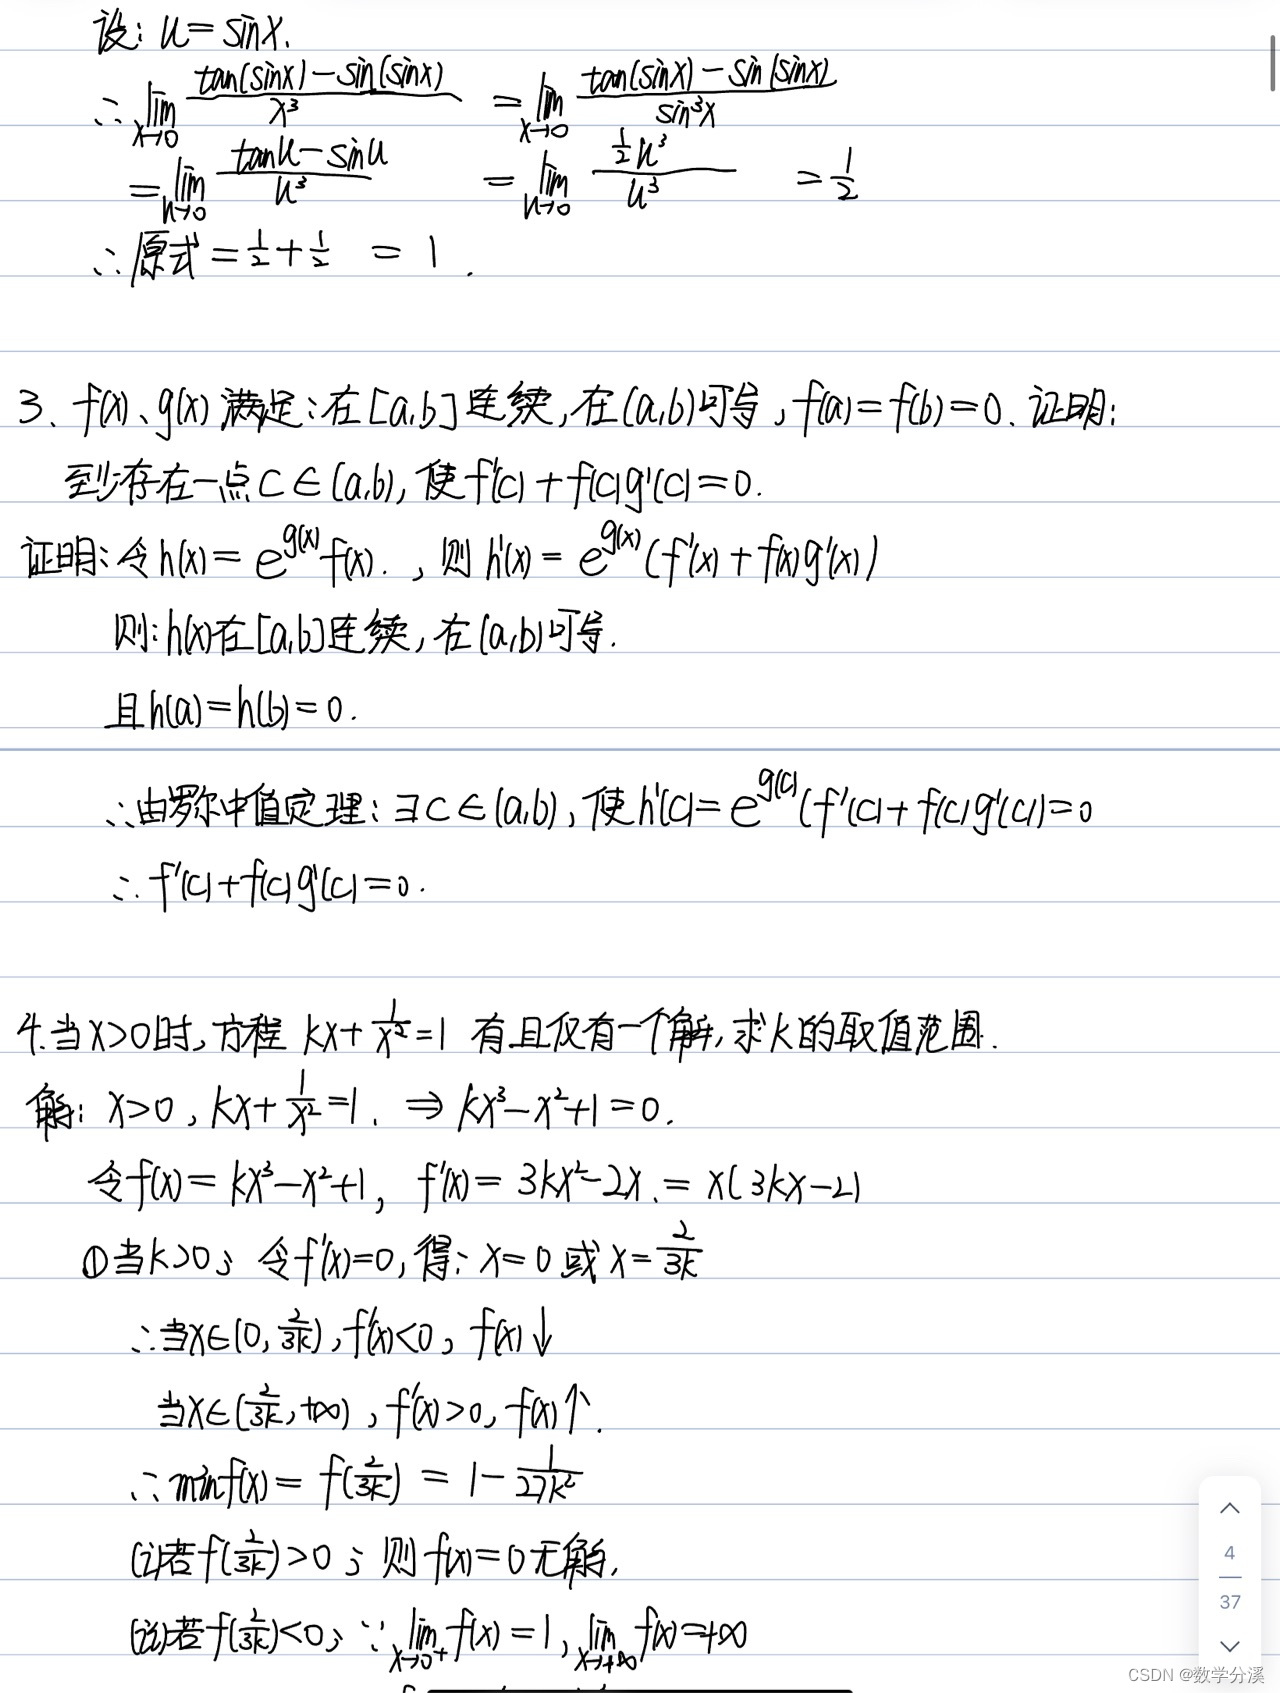 设: u = sinx.
∴ lim_{x→0} (tan(sinx) - sin(sinx))/x³ = lim_{x→0} (tan(sinx) - sin(sinx))/sin³x
= lim_{u→0} (tanu - sinu)/u³ = lim_{u→0} (½u³)/u³ = 1/2
∴ 原式 = 1/2 + 1/2 = 1.
3. f(x)、g(x) 满足: 在[a,b]连续, 在(a,b)可导, f(a) = f(b) = 0. 证明:
至少存在一点 c ∈ (a,b), 使 f'(c) + f(c)g'(c) = 0.
证明: 令 h(x) = e^{g(x)} f(x). , 则 h'(x) = e^{g(x)} (f'(x) + f(x)g'(x))
则: h(x)在[a,b]连续, 在(a,b)可导.
且 h(a) = h(b) = 0.
∴ 由罗尔中值定理: ∃ c ∈ (a,b), 使 h'(c) = e^{g(c)} (f'(c) + f(c)g'(c)) = 0
∴ f'(c) + f(c)g'(c) = 0.
4. 当 x>0 时, 方程 kx + 1/x² = 1 有且仅有一个解, 求 k 的取值范围.
解: x>0, kx + 1/x² = 1. ⇒ kx³ - x² + 1 = 0.
令 f(x) = kx³ - x² + 1, f'(x) = 3kx² - 2x. = x(3kx - 2)
① 当 k>0; 令 f'(x) = 0, 得: x = 0 或 x = 2/3k
∴ 当 x∈(0, 2/3k), f'(x)<0, f(x)↓
当 x∈(2/3k, +∞), f'(x)>0, f(x)↑.
∴ minf(x) = f(2/3k) = 1 - 1/27k²
(i) 若 f(2/3k) > 0; 则 f(x) = 0 无解.
(ii) 若 f(2/3k) < 0; ∵ lim_{x→0⁺} f(x) = 1, lim_{x→+∞} f(x) = +∞
4
37
CSDN @数学分溪